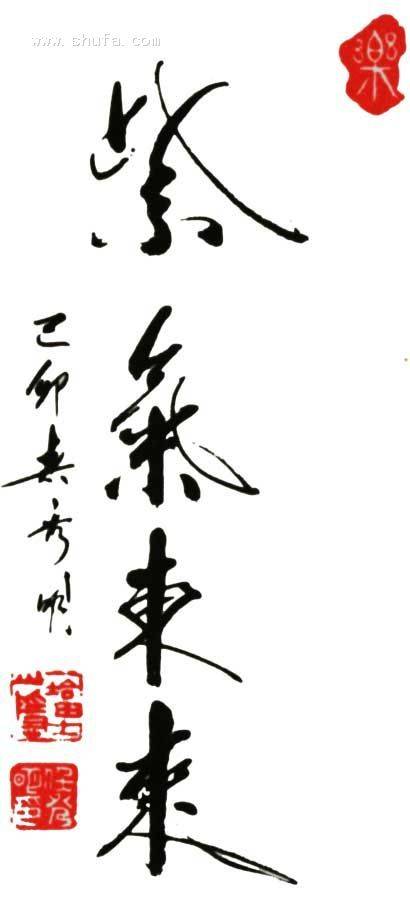 www.shufa.com
樂
紫氣東來
己卯春秀明